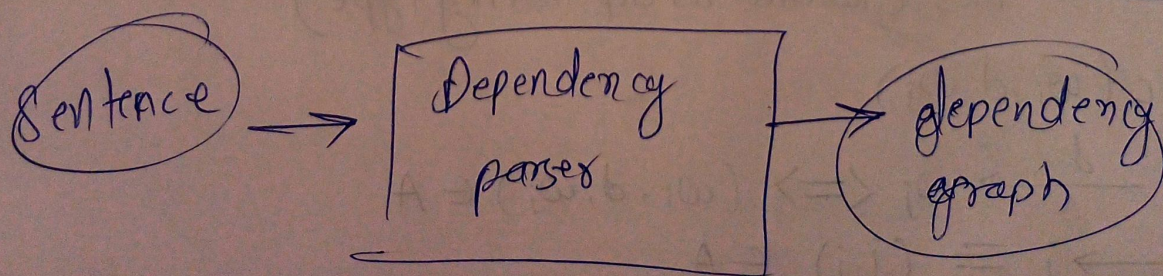 Sentence
Dependency
parser
dependency
graph